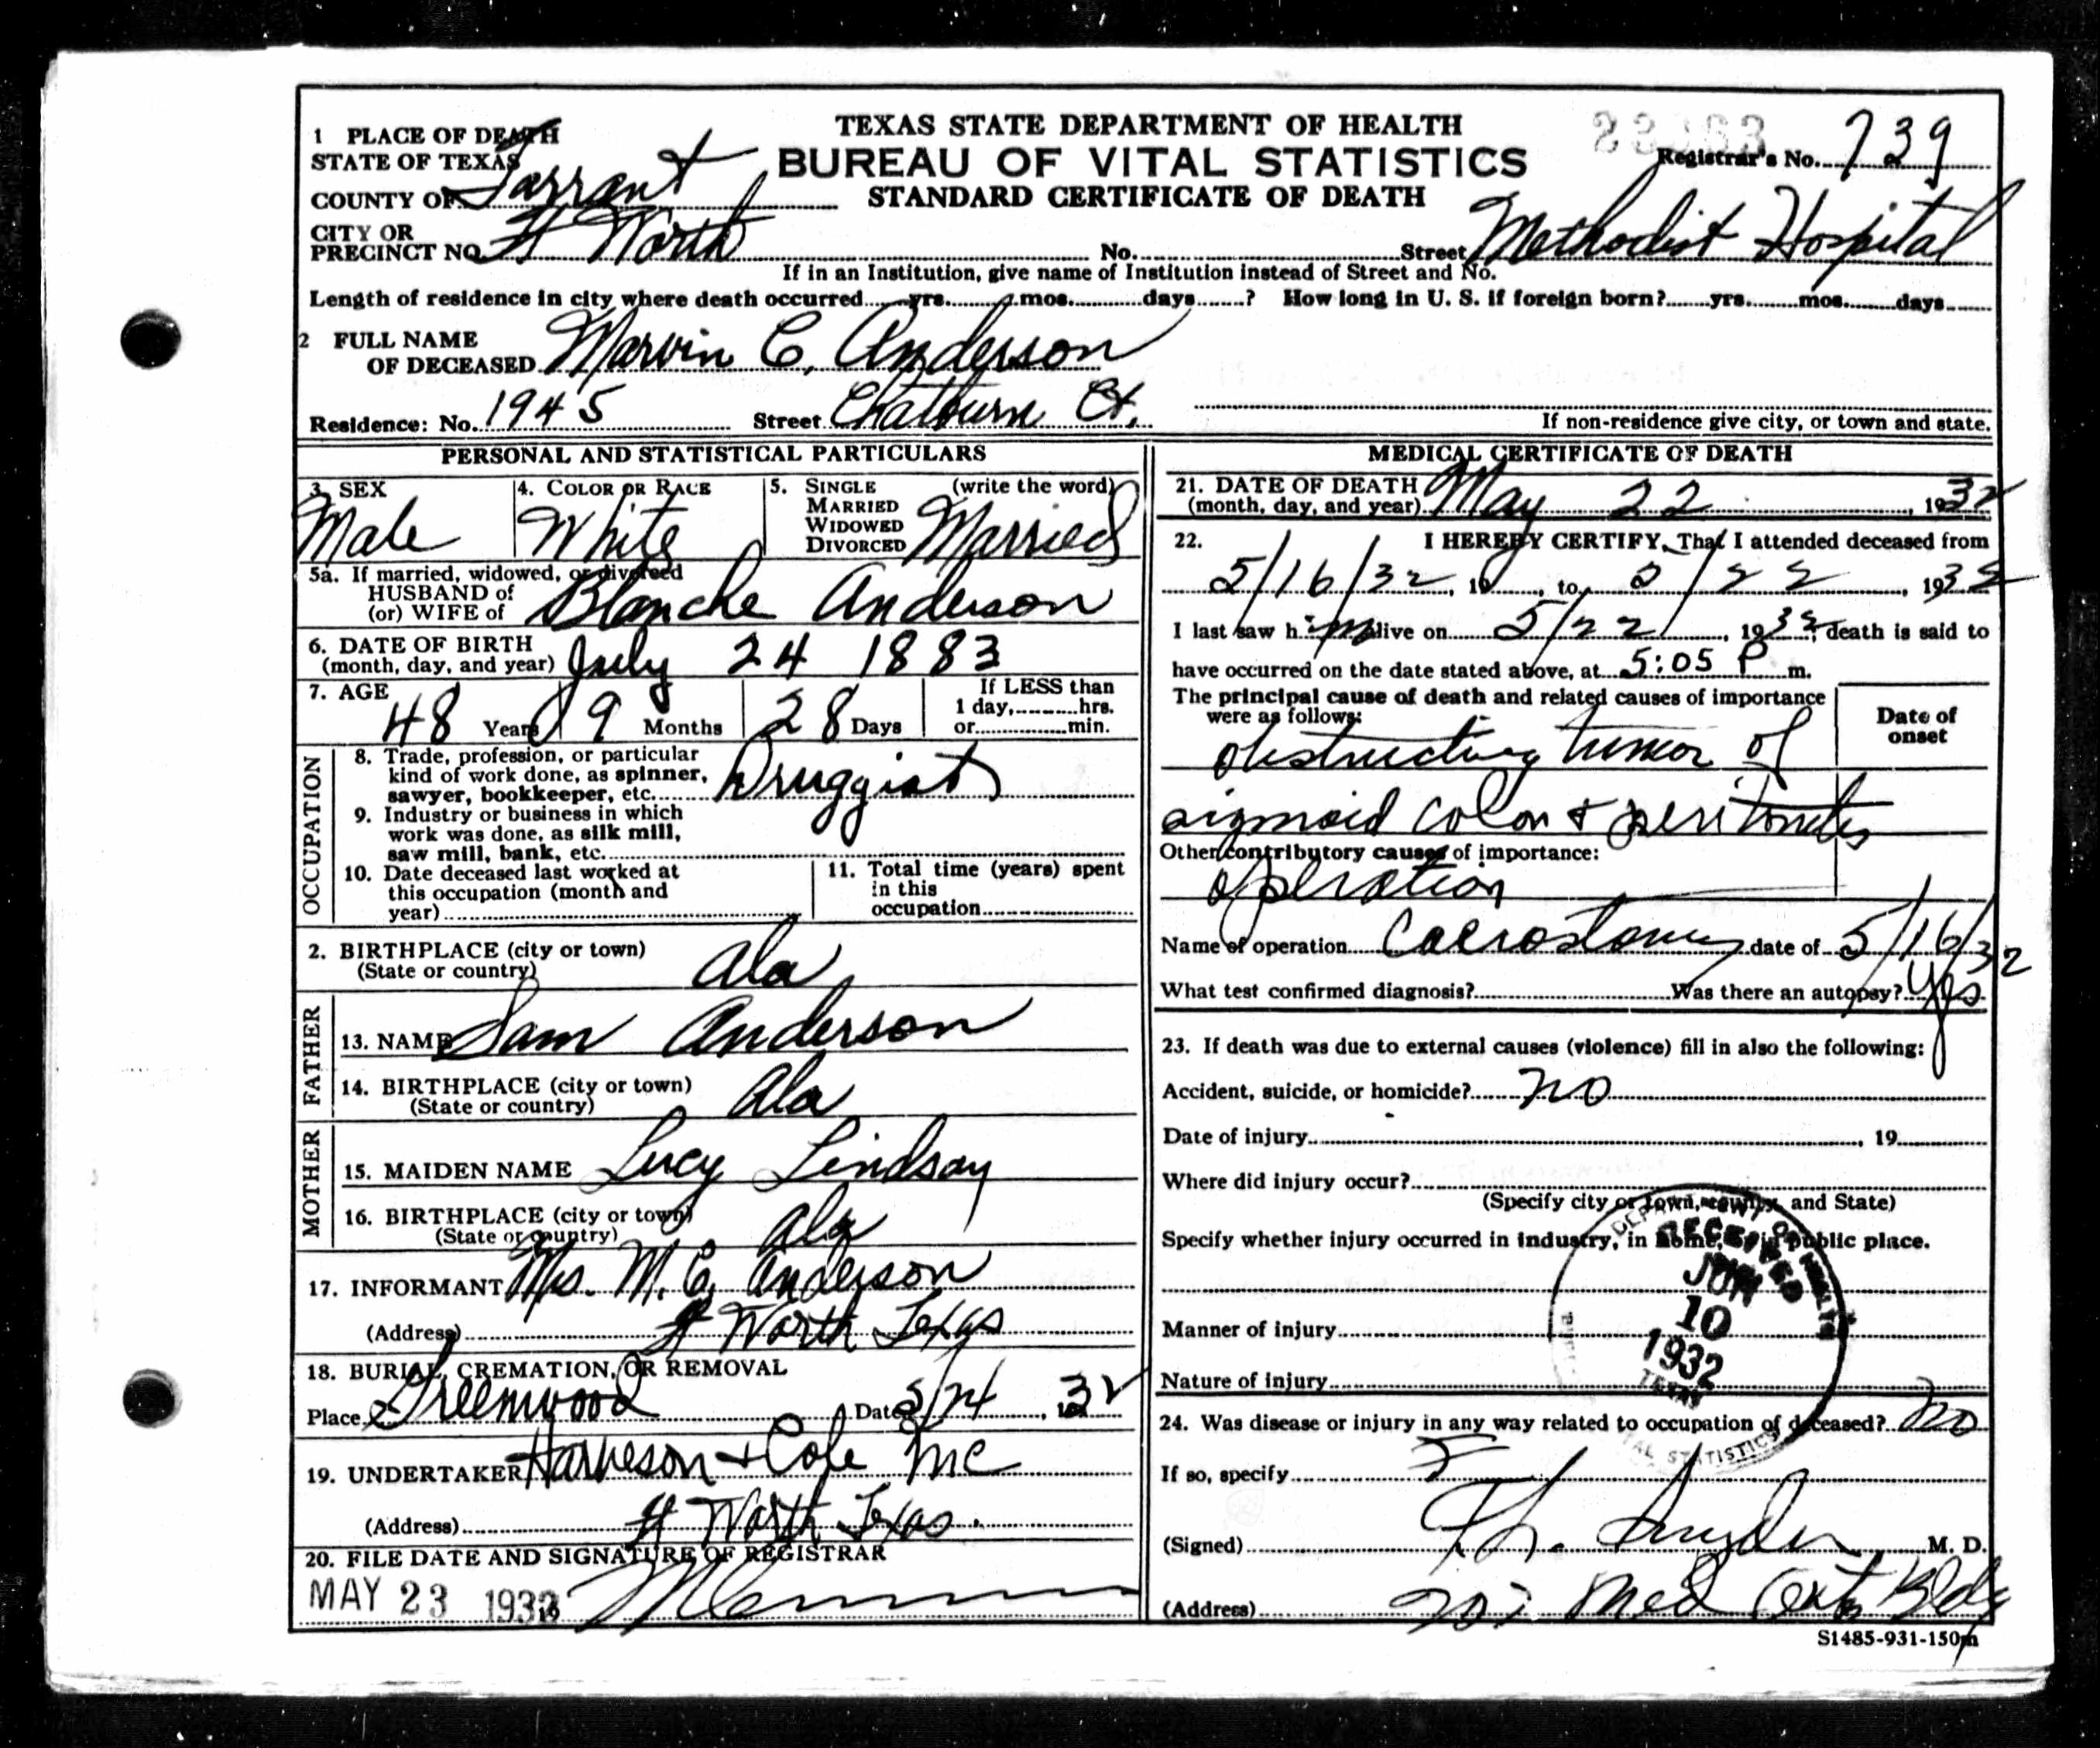 TEXAS STATE DEPARTMENT OF HEALTH
BUREAU OF VITAL STATISTICS
STANDARD CERTIFICATE OF DEATH
Registrar's No. 739
1 PLACE OF DEATH
STATE OF TEXAS
COUNTY OF Tarrant
CITY OR
PRECINCT NO. Ft Worth No. Street Methodist Hospital
If in an Institution, give name of Institution instead of Street and No.
Length of residence in city where death occurred yrs. mos. days ? How long in U. S. if foreign born? yrs. mos. days
2 FULL NAME
OF DECEASED Marvin C. Anderson
Residence: No. 1945 Street Chatburn Ct.
If non-residence give city, or town and state.
PERSONAL AND STATISTICAL PARTICULARS
3. SEX
Male
4. COLOR OR RACE
White
5. SINGLE (write the word)
MARRIED
WIDOWED
DIVORCED Married
5a. If married, widowed, or divorced
HUSBAND of
(or) WIFE of Blanche Anderson
6. DATE OF BIRTH
(month, day, and year) July 24 1883
7. AGE
48 Years 9 Months 28 Days
If LESS than
1 day, hrs.
or min.
OCCUPATION
8. Trade, profession, or particular
kind of work done, as spinner,
sawyer, bookkeeper, etc. Druggist
9. Industry or business in which
work was done, as silk mill,
saw mill, bank, etc.
10. Date deceased last worked at
this occupation (month and
year)
11. Total time (years) spent
in this
occupation
2. BIRTHPLACE (city or town)
(State or country) Ala
FATHER
13. NAME Sam Anderson
14. BIRTHPLACE (city or town)
(State or country) Ala
MOTHER
15. MAIDEN NAME Lucy Lindsay
16. BIRTHPLACE (city or town)
(State or country) Ala
17. INFORMANT Mrs. M. C. Anderson
(Address) Ft Worth Texas
18. BURIAL, CREMATION, OR REMOVAL
Place Greenwood Date 5/24, 32
19. UNDERTAKER Harveson + Cole Inc
(Address) Ft Worth Texas.
20. FILE DATE AND SIGNATURE OF REGISTRAR
MAY 23 1932
MEDICAL CERTIFICATE OF DEATH
21. DATE OF DEATH
(month, day, and year) May 22, 1932
22. I HEREBY CERTIFY, That I attended deceased from
5/16/32, 19 , to 5/22, 1932
I last saw him alive on 5/22/, 1932, death is said to
have occurred on the date stated above, at 5:05 P m.
The principal cause of death and related causes of importance
were as follows:
Date of
onset
Obstructing tumor of
sigmoid colon + peritonitis
Other contributory causes of importance:
operation
Name of operation Caecostomy date of 5/16/32
What test confirmed diagnosis? Was there an autopsy? Yes
23. If death was due to external causes (violence) fill in also the following:
Accident, suicide, or homicide? no
Date of injury , 19
Where did injury occur?
(Specify city or town, county, and State)
Specify whether injury occurred in industry, in home, or in public place.
Manner of injury
Nature of injury
RECEIVED
JUN
10
1932
TEXAS
24. Was disease or injury in any way related to occupation of deceased? no
If so, specify
(Signed) Snyder, M. D.
(Address) 207 Med Arts Bldg
S1485-931-150m